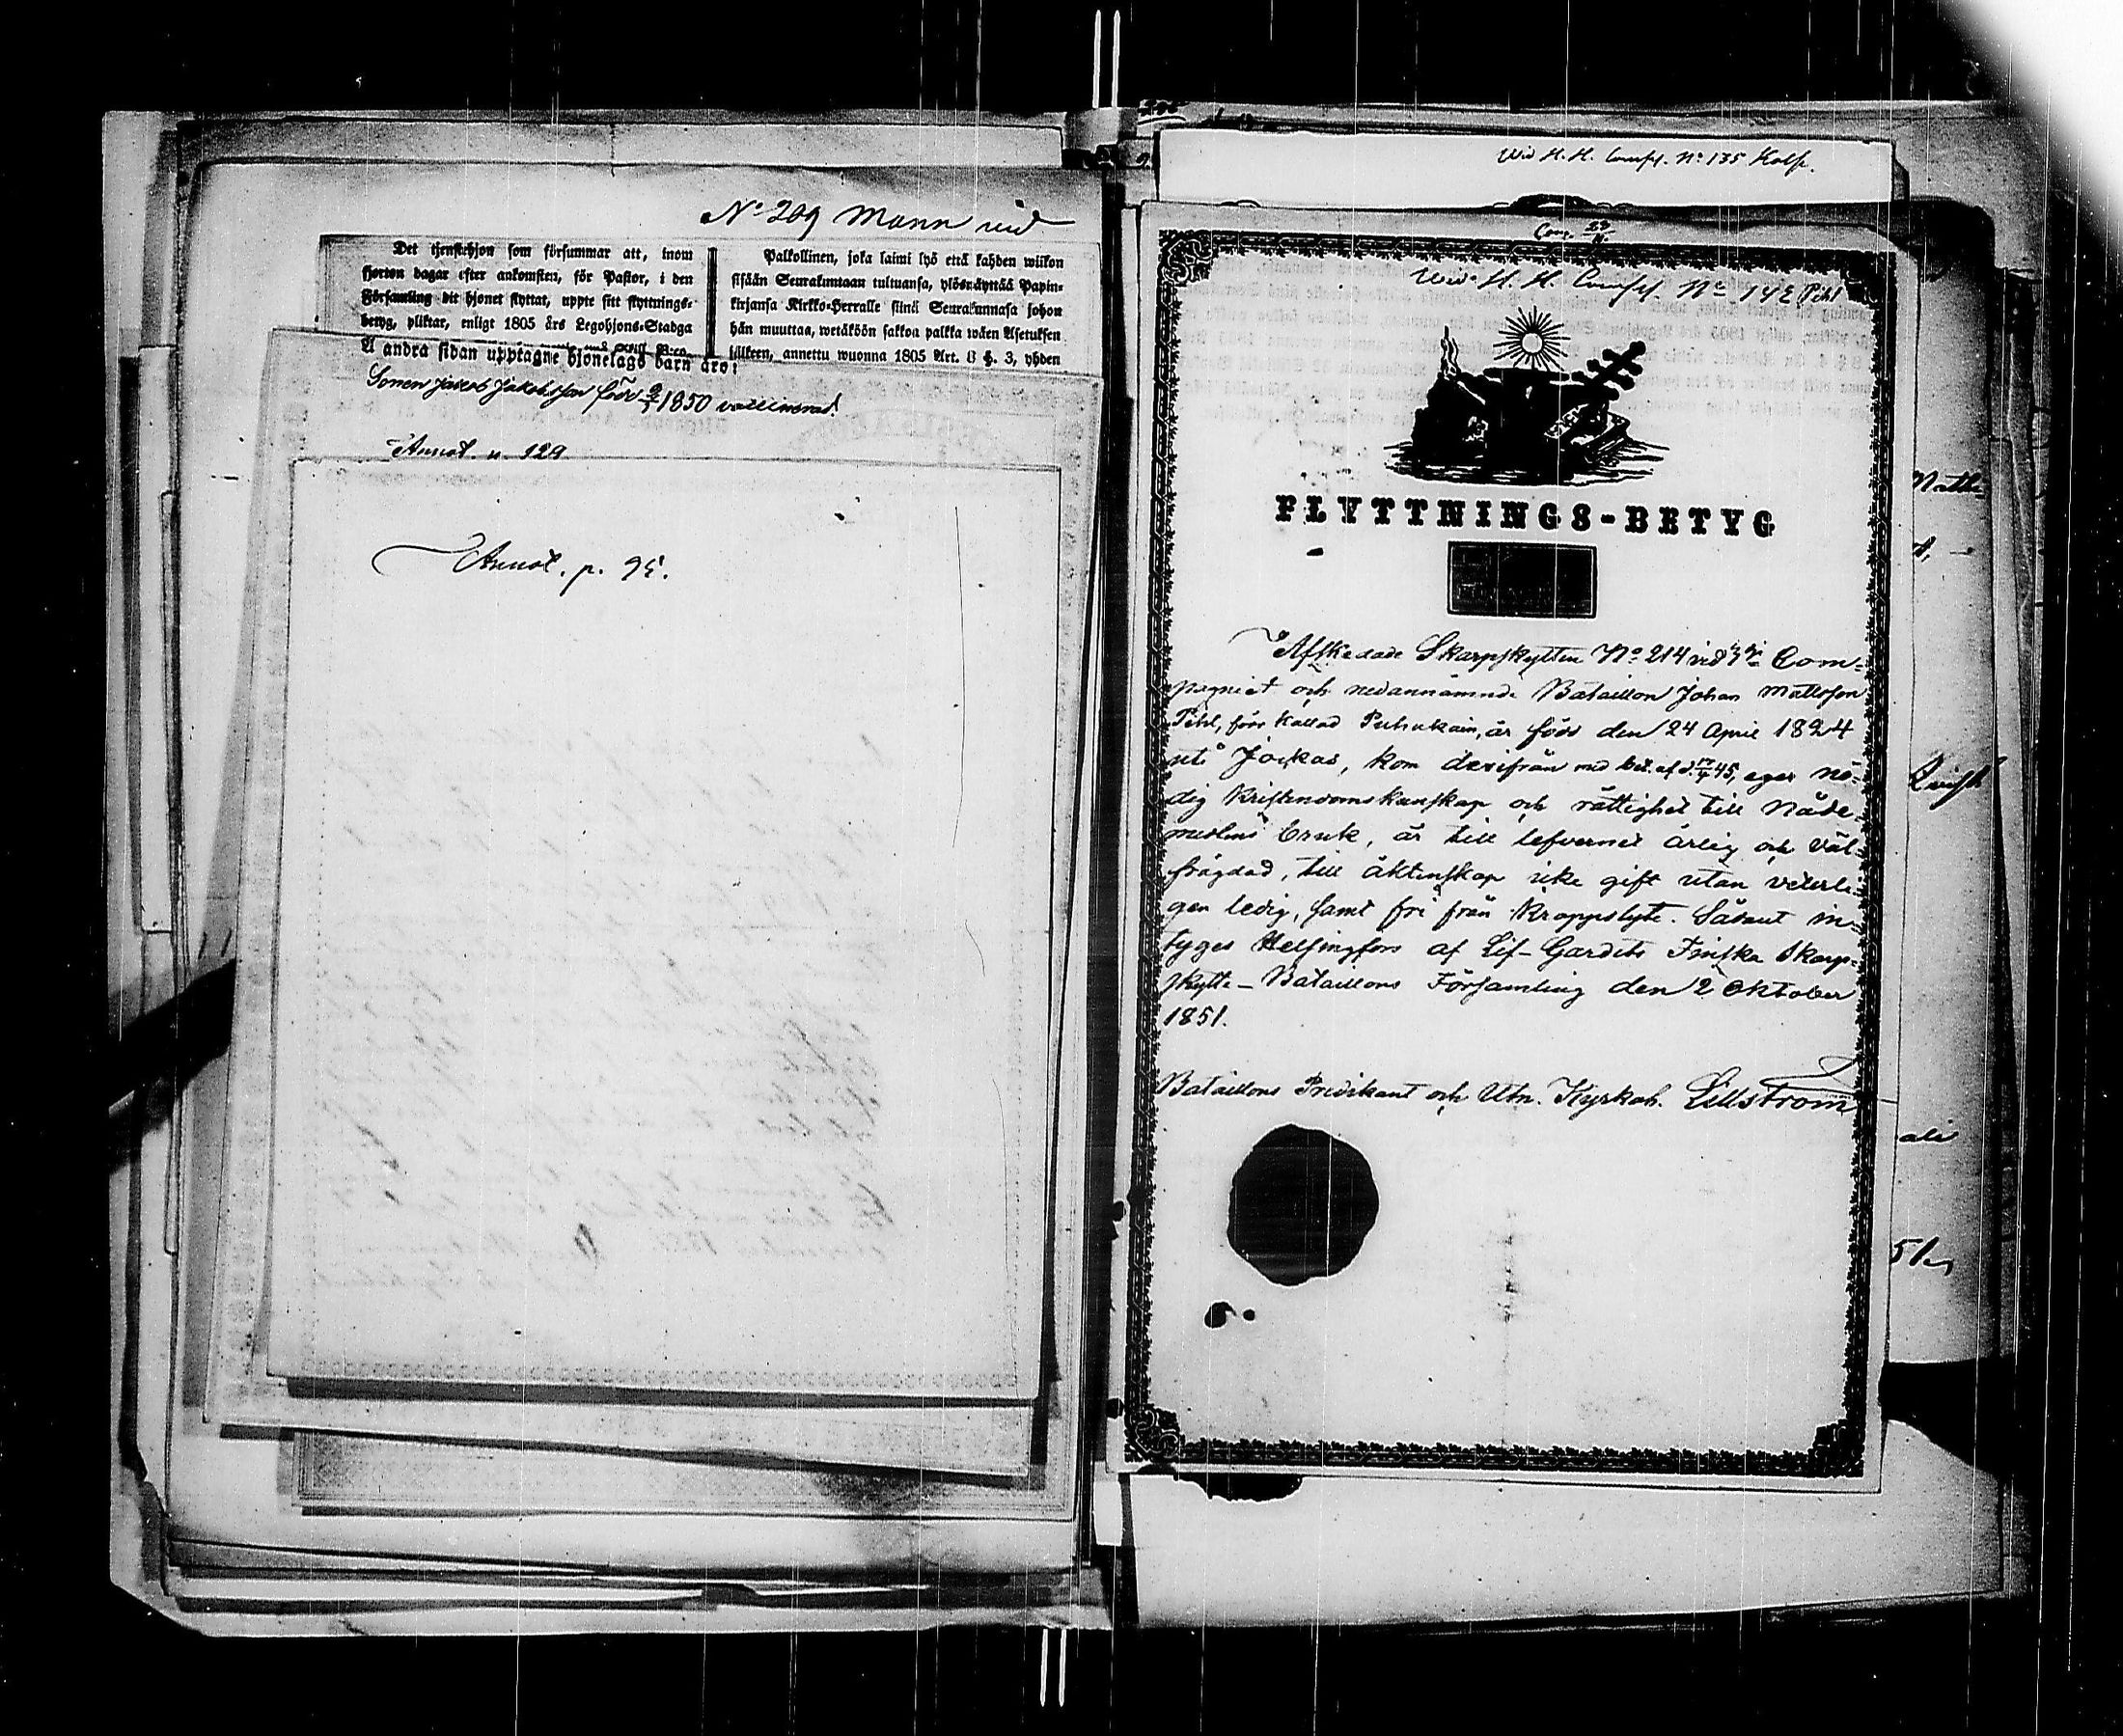 No 209 Mann vid
Det tjenstehjon som försummar att, inom
fjorton dagar efter ankomsten, för Pastor, i den
Församling dit hjonet flyttat, uppte sitt flyttnings-
betyg, pliktar, enligt 1805 års Legohjons-Stadga
Palkollinen, joka laimi lyö että kahden wiikon
sisään Seurakuntaan tultuansa, ylösnäyttää Papin-
kirjansa Kirkko-Herralle siinä Seurakunnasa johon
hän muuttaa, wetäköön sakkoa palkka wäen Asetuksen
jälkeen, annettu wuonna 1805 Art. §. 3, yhden
Å andra sidan upptagne hjonelags barn äro:
Sonen Jacob Jakobsson född 1850 vaccinerad.
Annot. p. 129
Annot. p. 95.
Wid H. H. Compy. No 135 Kolf.
Wid H. H. Compy. No 142 Pihl
FLYTTNINGS-BETYG
Afskedade Skarpskytten No 214 vid Com-
pagniet och nedannämnde Bataillon Johan Mattsson
Pihl, förr kallad Puhakain, är född den 24 April 1824
uti Jockas, kom derifrån med bet. af d. 45, eger nö-
dig Kristendomskunskap och rättighet till Nåde-
medlens bruk, är till lefvernet ärlig och väl-
frägdad, till äktenskap icke gift utan veterli-
gen ledig, samt fri från Kroppslyte. Sådant in-
tyges Helsingfors af Lif-Gardets Finska Skarp-
skytte-Bataillons Församling den 2 Oktober
1851.
Bataillons Predikant och Utn. Kyrkoh. Lillström
51